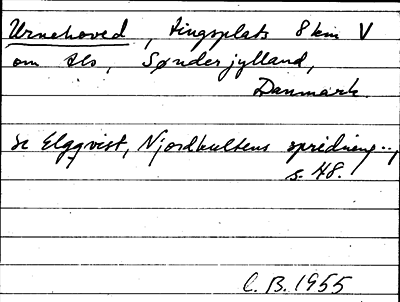 Urnehoved, tingsplats 8 km V
om Als, Sønderjylland,
Danmark.
Se Elgqvist, Njordkultens spridning..,
s. 48.
C. B. 1955